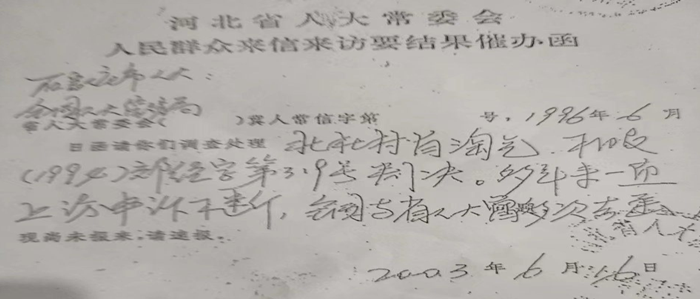 河北省人大常委会
人民群众来信来访要结果催办函
石家庄市人大:
全国人大信访局
常人大常委会( )冀人常信字第 号,1996年6月
日函请你们调查处理 北杜村肖淘气 不服
(1994)郊经字第319号判决。多年来一直
上访申诉不断,全国与省人大 多次
现尚未报来,请速报。
省人大
2003年6月16日